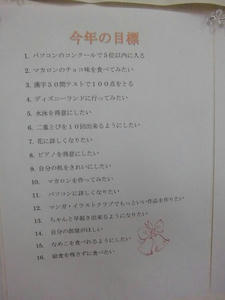 今年の目標
1. パソコンのコンクールで5位以内に入る
2. マカロンのチョコ味を食べてみたい
3. 漢字50問テストで100点をとる
4. ディズニーランドに行ってみたい
5. 水泳を得意にしたい
6. 二重とびを10回出来るようにしたい
7. 花に詳しくなりたい
8. ピアノを得意にしたい
9. 自分の机をきれいにしたい
10. マカロンを作ってみたい
11. パソコンに詳しくなりたい
12. マンガ・イラストクラブでもっといい作品を作りたい
13. ちゃんと早起き出来るようになりたい
14. 自分の部屋がほしい
15. なめこを食べれるようにしたい
16. 給食を残さずに食べたい